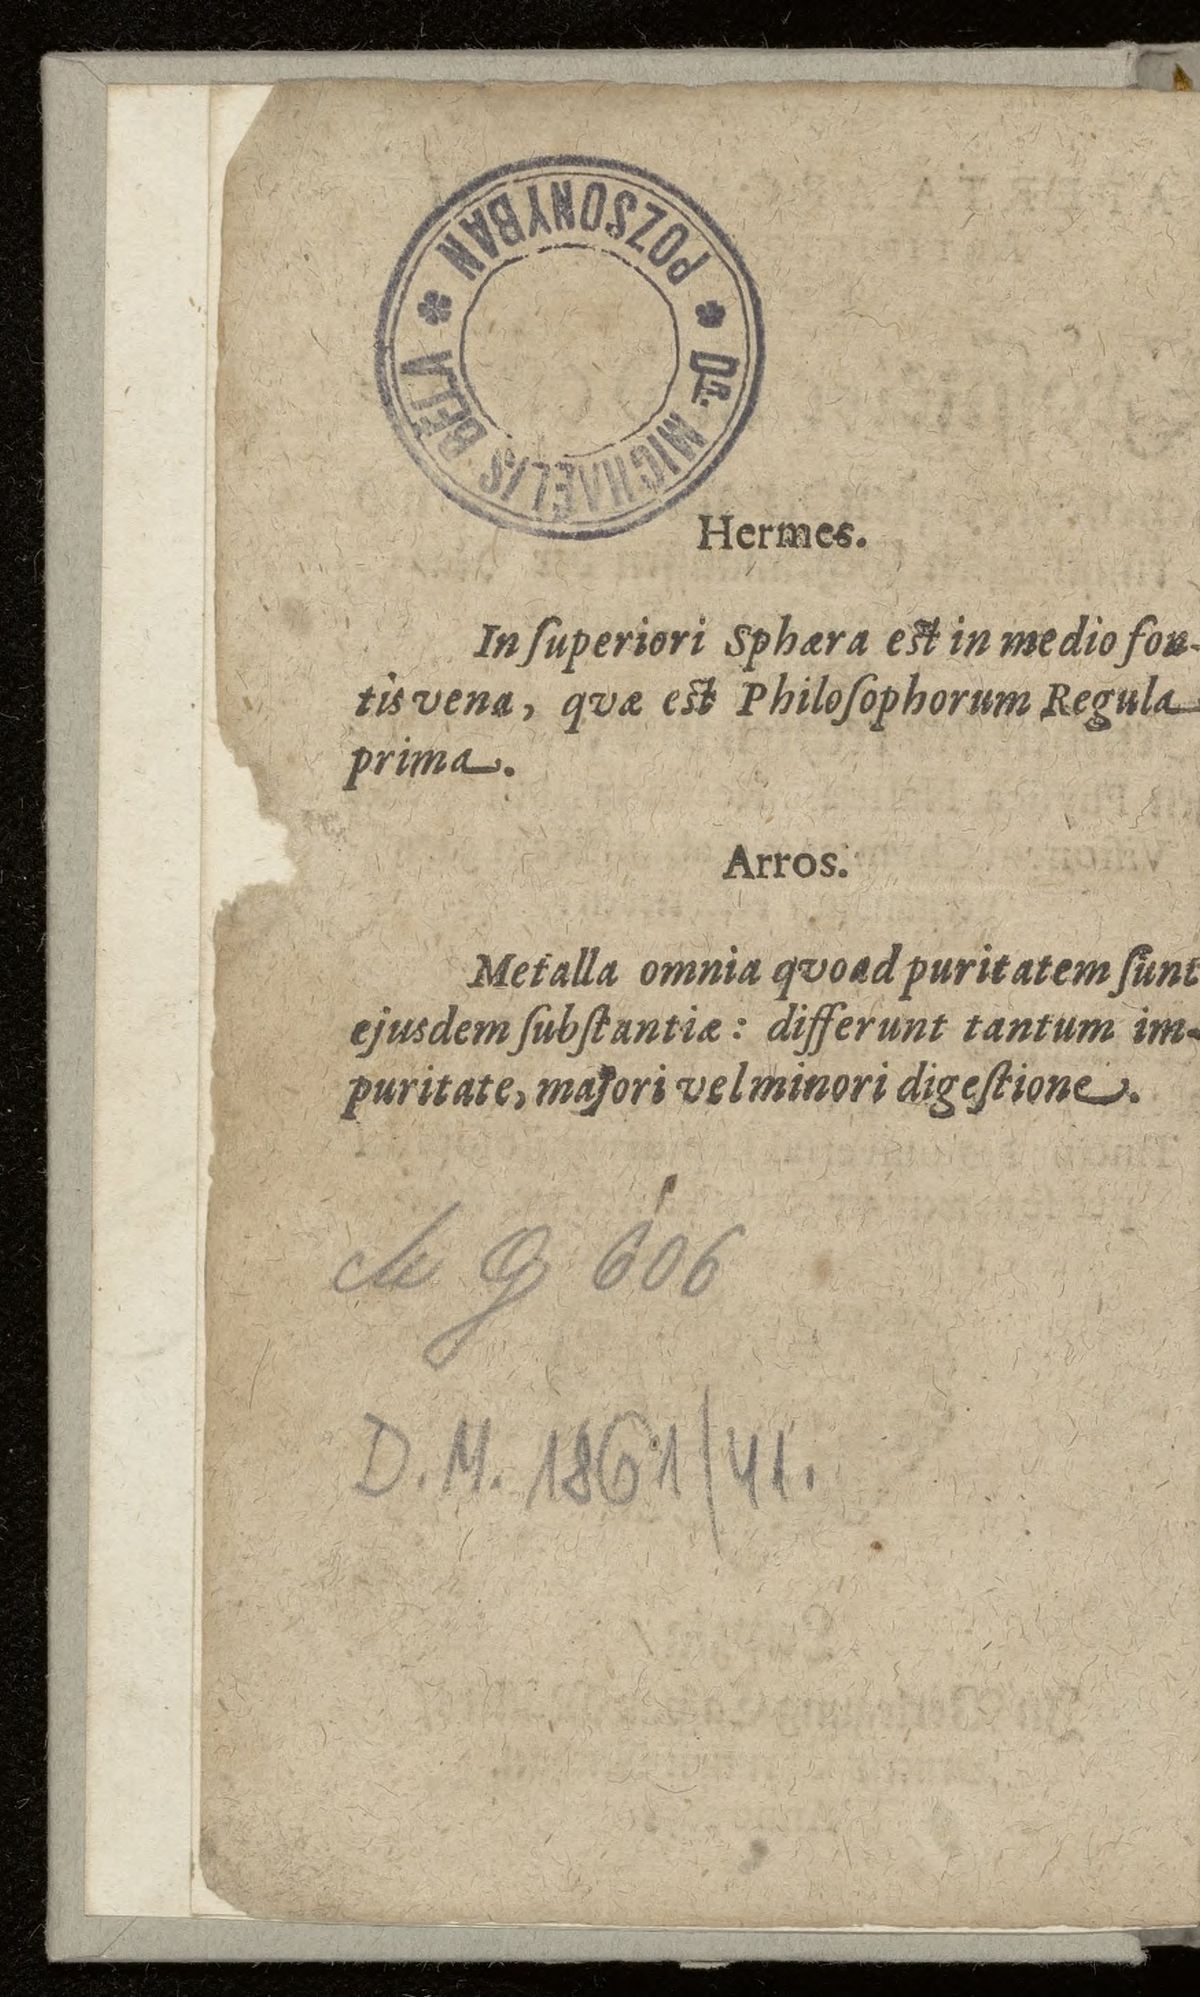 POZSONYBAN
Dr. MICHAELIS BELLA
Hermes.
In ſuperiori Sphæra est in medio fon-
tis vena, qvæ est Philoſophorum Regula
prima.
Arros.
Metalla omnia qvoad puritatem ſunt
ejusdem ſubſtantiæ: differunt tantum im-
puritate, majori vel minori digeſtione.
G 606
D. M. 1861/41.